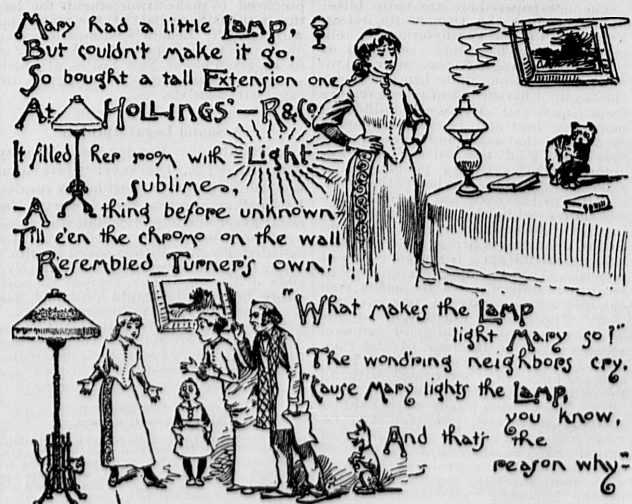 Mary had a little Lamp,
But couldn't make it go.
So bought a tall Extension one
At HOLLINGS' – R & Co.
It filled her room with Light
sublime,
–A thing before unknown
Till e'en the chromo on the wall
Resembled Turner's own!
"What makes the Lamp
light Mary so?"
The wond'ring neighbors cry.
"'Cause Mary lights the Lamp,
you know,
And that's the
reason why–"